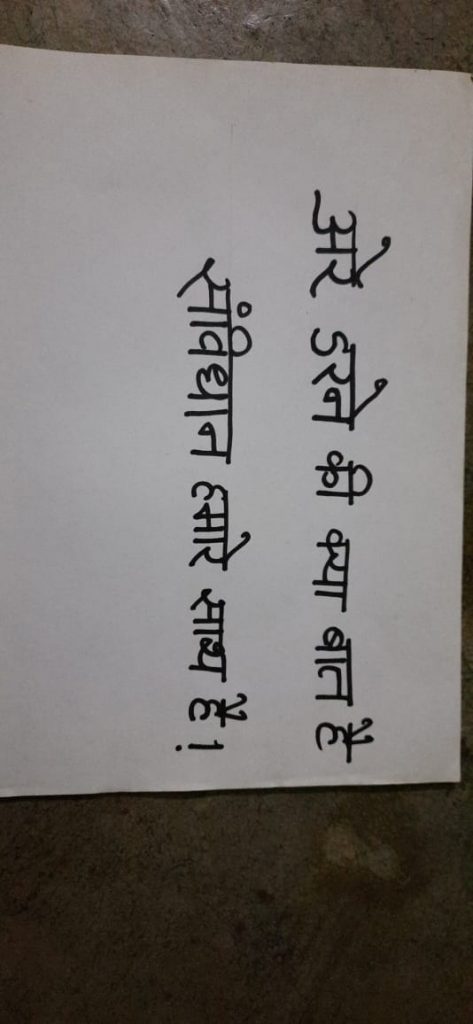 अरे डरने की क्या बात है
संविधान हमारे साथ है!